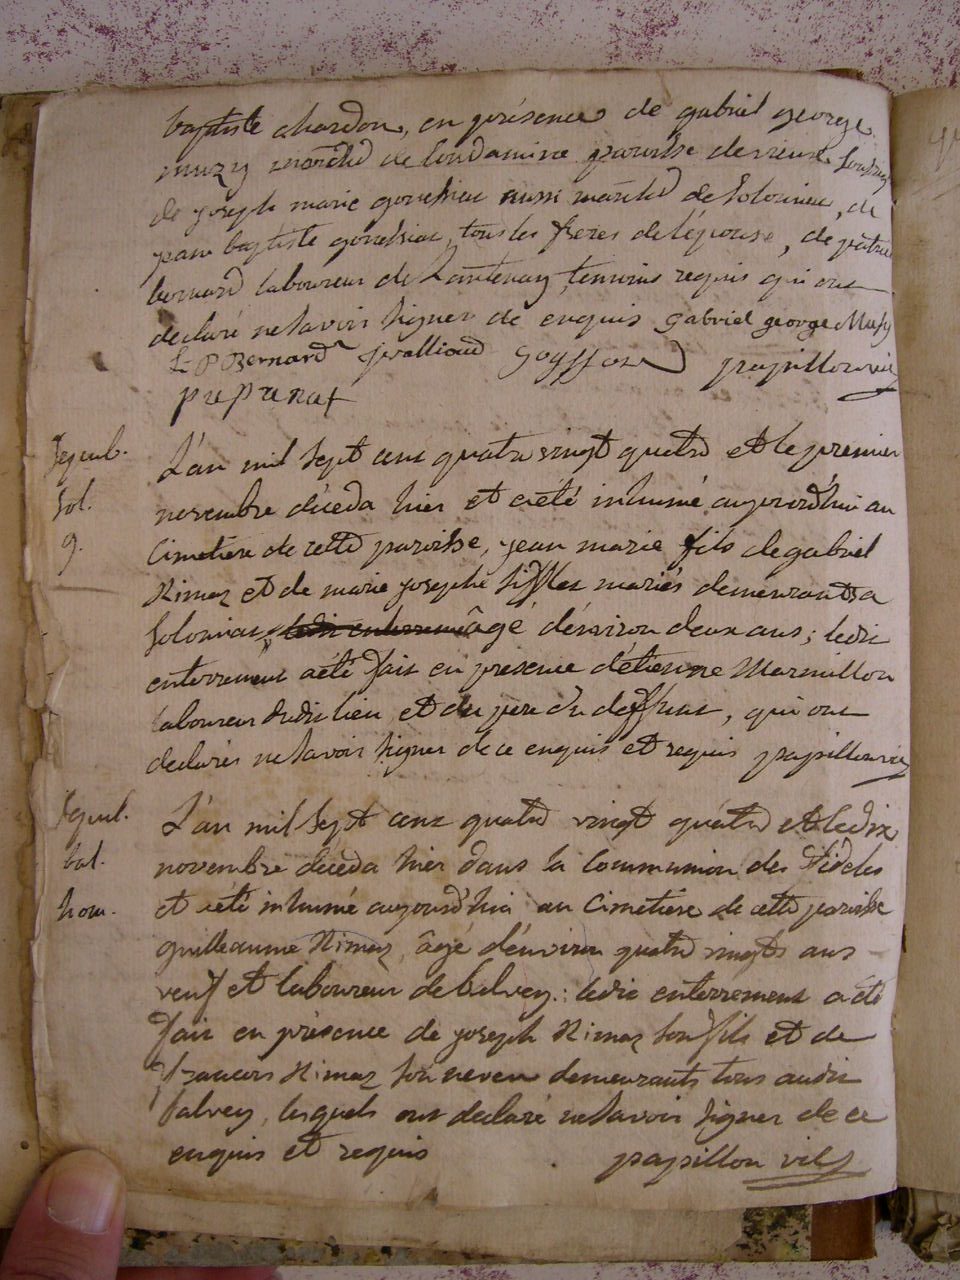 baptiste chardon, en présence de gabriel george
muzy marchd de londamine paroisse
de joseph marie goneshiau aussi marchd de Solomiau, de
baptiste goneshiau, tous les freres de l'épouse, de
bernard laboureur de Lantenay, temoins requis qui ont
declaré ne savoir signer de enquis gabriel george Muzy
L P Bernard Juilliard Goyffond papillon vic
Sepul. L'an mil Sept cent quatre vingt quatre et le premier
Sol. novembre déceda hier et a été inhumé aujourd'hui au
g. Cimetiere de cette paroisse, jean marie fils de gabriel
Nimaz et de marie josephe mariés demeurants a
Solomiau, ledit enterrement âgé d'environ deux ans; ledit
enterrement a été fait en presence d'étienne Marmillon
laboureur dudit lieu et du père du deffunt, qui ont
declarés ne savoir signer de ce enquis et requis papillon vic
Sepul. L'an mil Sept cent quatre vingt quatre et le dix
bal. novembre déceda hier dans la Communion des fideles
hom. et a été inhumé aujourd'hui au Cimetiere de cette paroisse
guilleaume Nimaz, âgé d'environ quatre vingts ans
veuf et laboureur de balvey: ledit enterrement a été
fait en présence de joseph Nimaz son fils et de
francois Nimaz son neveu demeurants tous audit
balvey, lesquels ont declaré ne savoir signer de ce
enquis et requis papillon vic